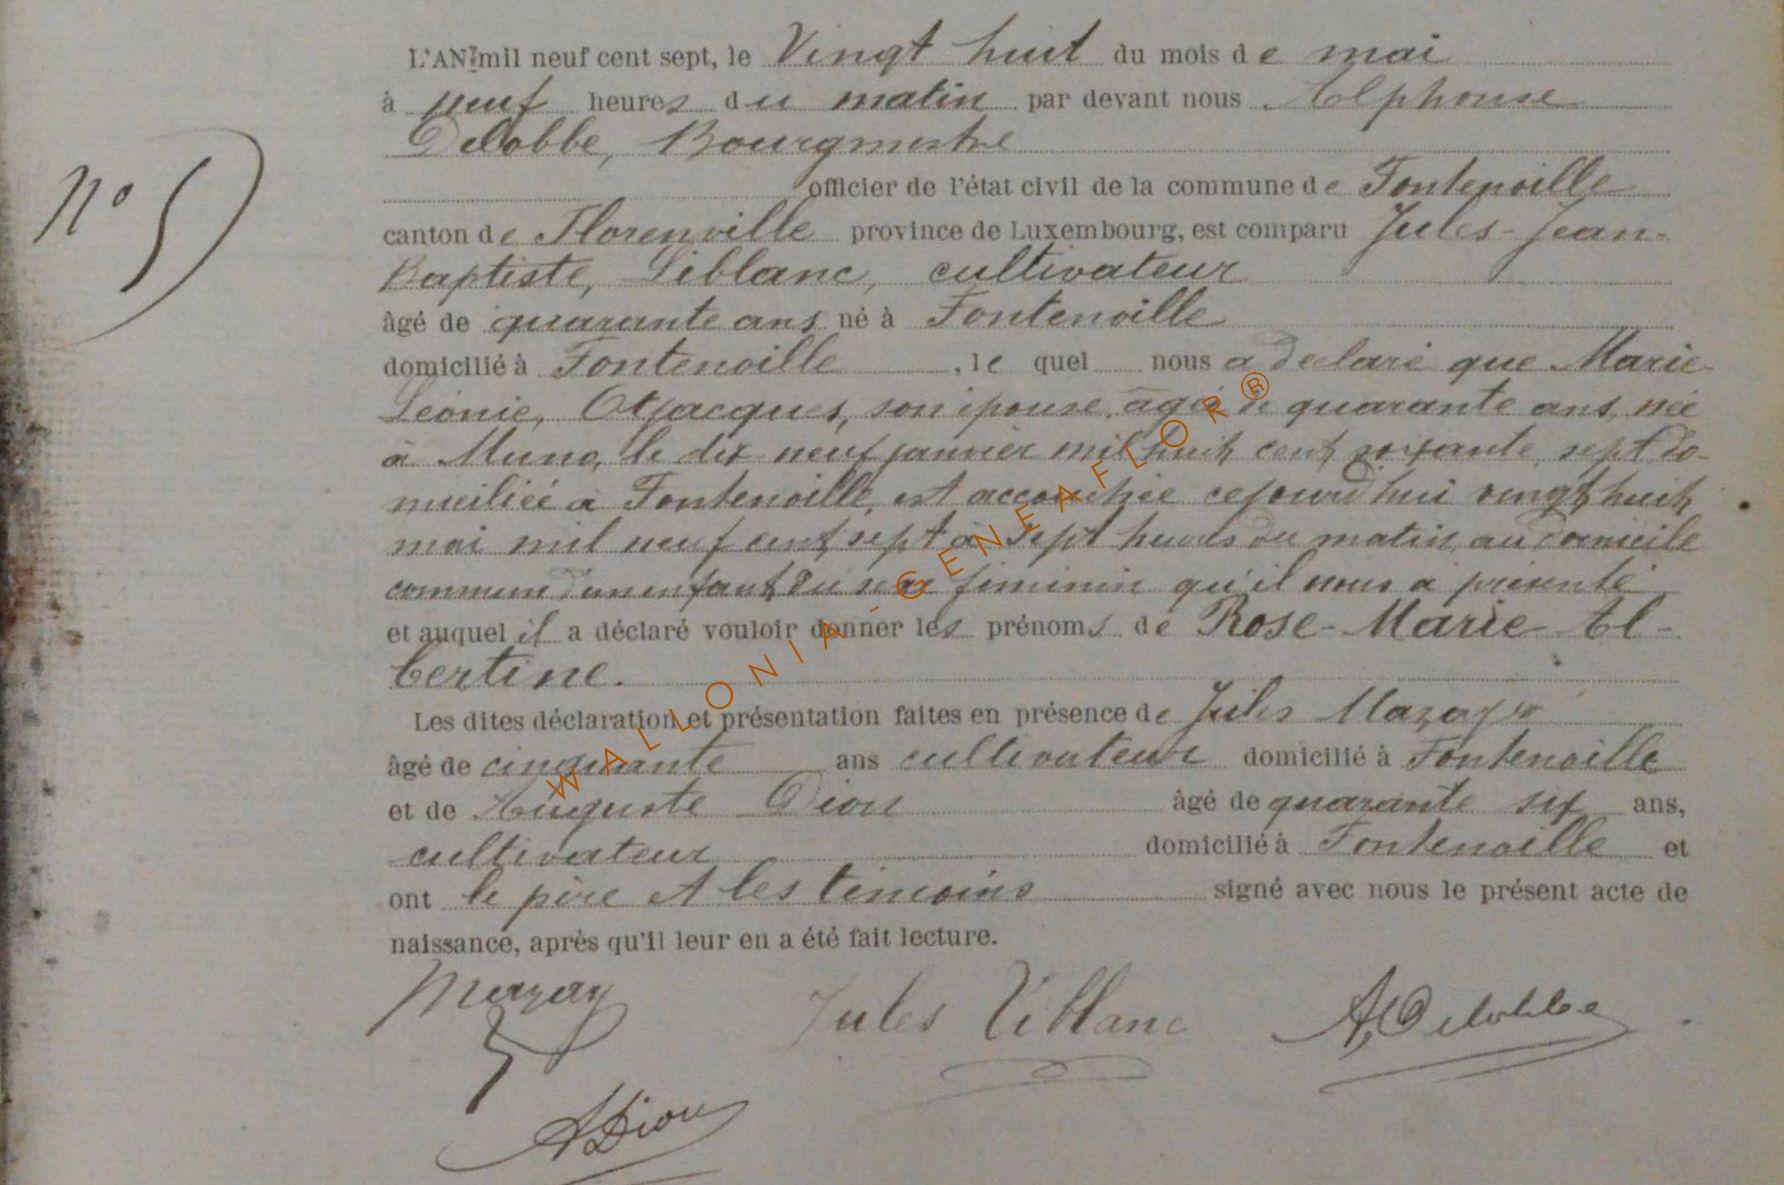 L'AN mil neuf cent sept, le Vingt huit du mois de mai
à neuf heures du matin par devant nous Alphonse
Delobbe, Bourgmestre
officier de l'état civil de la commune de Fontenoille
N° 5
canton de Florenville province de Luxembourg, est comparu Jules-Jean-
Baptiste, Liblanc, cultivateur
âgé de quarante ans né à Fontenoille
domicilié à Fontenoille , le quel nous a declaré que Marie
Léonie, Otjacques, son épouse, âgée de quarante ans, née
à Muno, le dix neuf janvier mil huit cent soixante sept do-
miciliée a Fontenoille, est accouchée cejourd'hui vingt huit
mai mil neuf cent sept à sept heures du matin, au domicile
commun d'un enfant du sexe féminin qu'il nous a présenté
et auquel il a déclaré vouloir donner les prénoms de Rose-Marie-Al-
bertine.
Les dites déclaration et présentation faites en présence de Jules Mazay
âgé de cinquante ans cultivateur domicilié à Fontenoille
et de Auguste Dion âgé de quarante six ans,
cultivateur domicilié à Fontenoille et
ont le père et les témoins signé avec nous le présent acte de
naissance, après qu'il leur en a été fait lecture.
Mazay Jules Liblanc A Delobbe
A Dion
WALLONIA-GENEAFLOR®